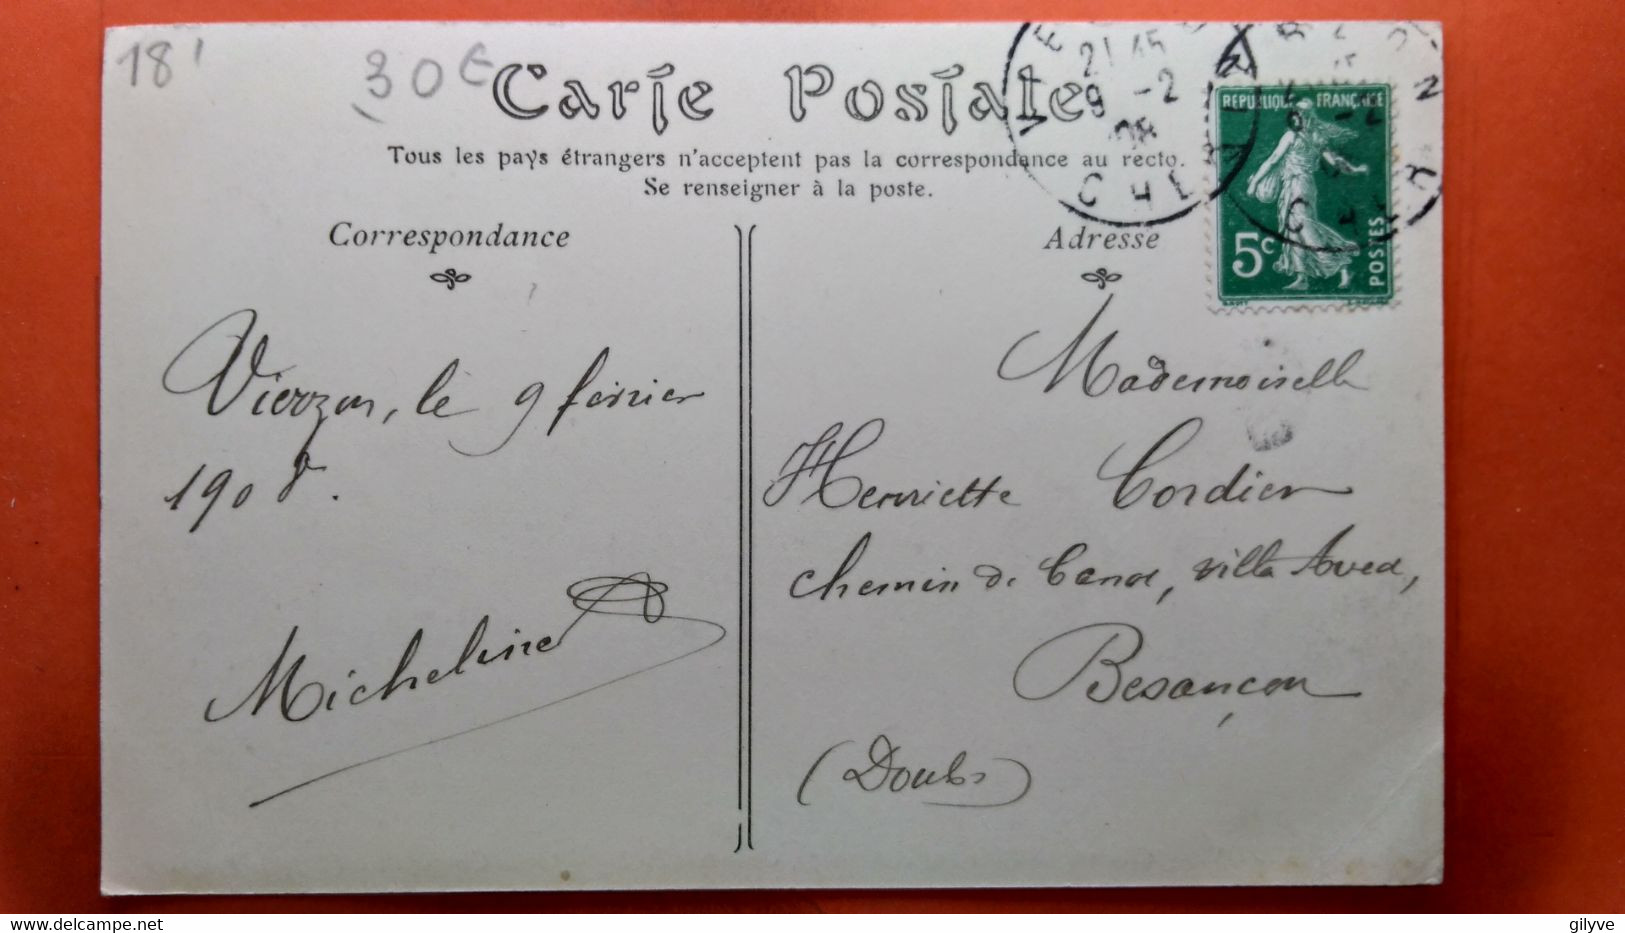 18
30€
Carte Postale
Tous les pays étrangers n'acceptent pas la correspondance au recto.
Se renseigner à la poste.
Correspondance
Adresse
21 45
9 -2
08
CHER
RÉPUBLIQUE FRANÇAISE
5c
POSTES
Vierzon, le 9 février
1908.
Micheline
Mademoiselle
Henriette Cordier
chemin de Canot, villa
Besançon
(Doubs)
gilyve